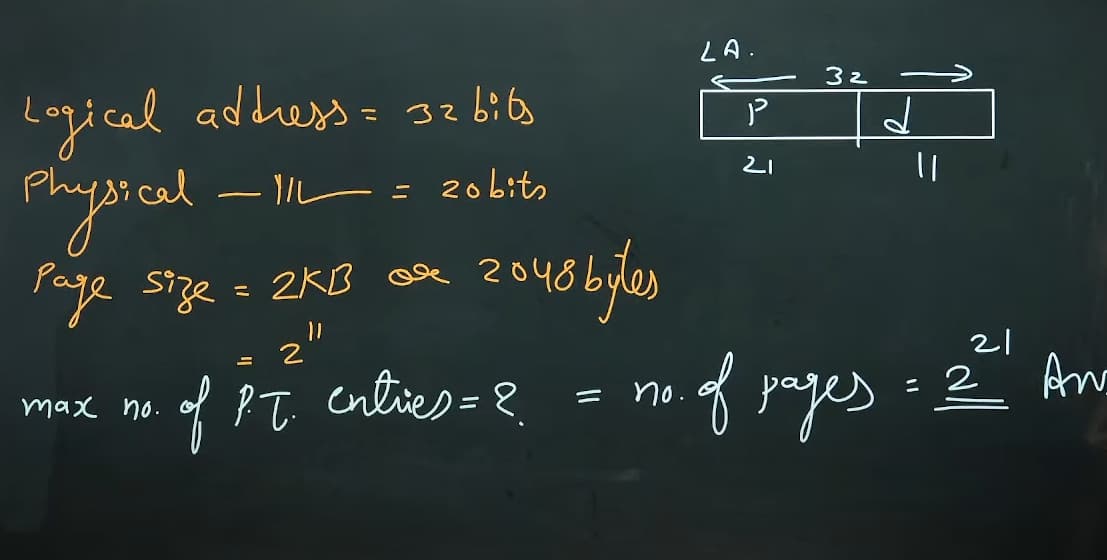 Logical address = 32 bits
Physical — 〃 — = 20 bits
Page size = 2KB or 2048 bytes
= 2^11
max no. of P.T. entries = ? = no. of pages = 2^21 Ans
L A.
32
P d
21 11